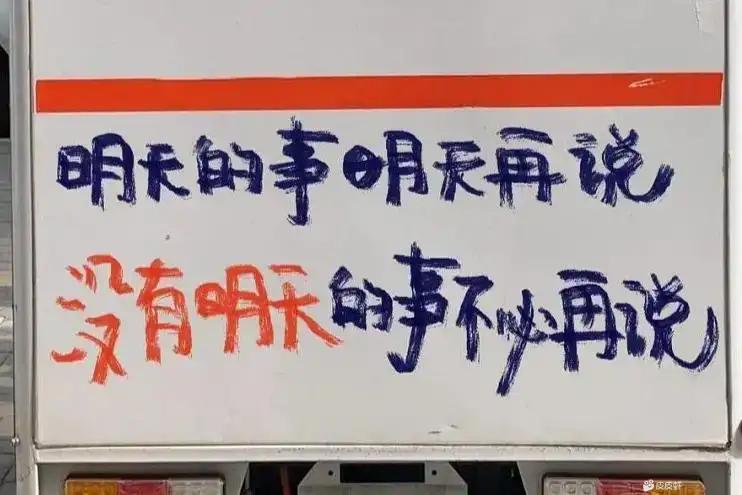 明天的事明天再说
没有明天的事不必再说
皮皮虾